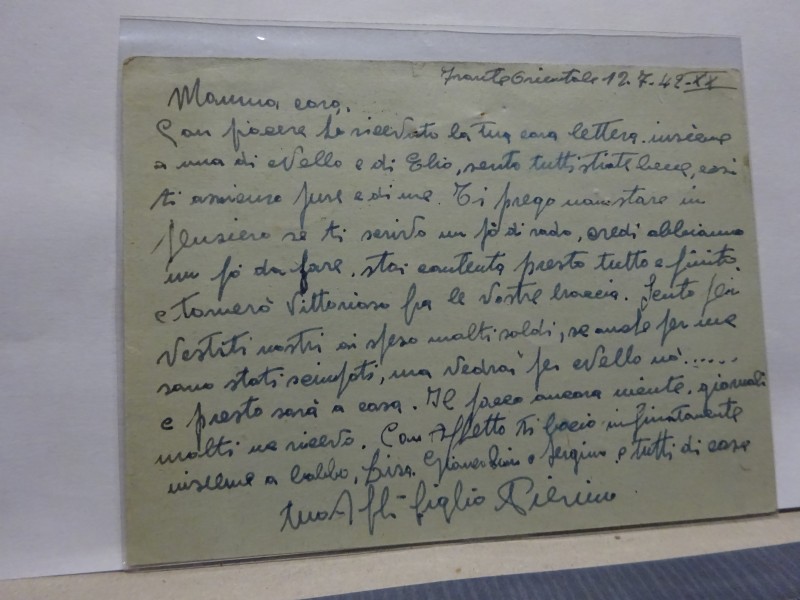 Fronte Orientale 12.7.42-XX
Mamma cara,
Con piacere ho ricevuto la tua cara lettera insieme
a una di Nello e di Elio, sento tutti state bene, così
ti assicuro pure e di me. Ti prego non stare in
pensiero se ti scrivo un pò di rado, credi abbiamo
un pò da fare, stai contenta presto tutto e finito
e tornerò Vittorioso fra le vostre braccia. Sento per
vestiti nostri ai speso molti soldi, se anche per me
sono stati sciupati, ma vedrai per Nello nò......
e presto sarà a casa. Il pacco ancora niente, giornali
molti ne ricevo. Con Affetto ti bacio infinitamente
insieme a babbo, e Sergino e tutti di casa
tuo Aff. figlio Pierino